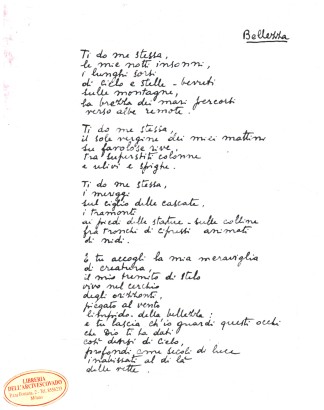 Bellezza
Ti do me stessa,
le mie notti insonni,
i lunghi sorsi
di cielo e stelle - bevuti
sulle montagne,
la brezza dei mari percorsi
verso albe remote.
Ti do me stessa,
il sole vergine dei miei mattini
su favolose rive
tra superstiti colonne
e ulivi e spighe.
Ti do me stessa,
i meriggi
sul ciglio delle cascate,
i tramonti
ai piedi delle statue - sulle colline
fra tronchi di cipressi animati
di nidi.
E tu accogli la mia meraviglia
di creatura,
il mio tremito di stelo
vivo nel cerchio
degli orizzonti,
piegato al vento
limpido - della bellezza:
e tu lascia ch'io guardi questi occhi
che Dio ti ha dati
così densi di cielo,
profondi come secoli di luce
inabissati al di là
delle vette.
LIBRERIA
DELL'ARCIVESCOVADO
Milano